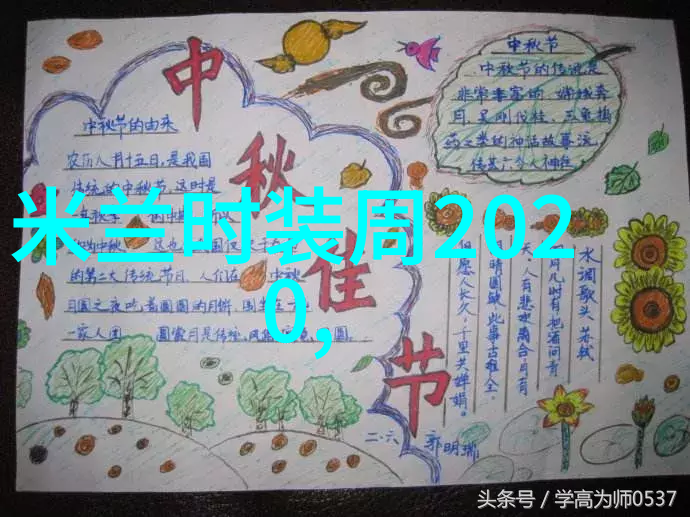 中秋佳节
米兰时装周202
0,
中秋节的由来
农历八月十五日,是我国
传统的中秋节,这时是
秋季 的中
为中秋 这也 国仅
的第二大传统节日。人们在 中秋
月圆之夜吃着圆圆的月饼,围坐在一
一家人团 圆赏月是传统
中秋节
中秋节的传说是
非常丰富的,嫦娥奔
月,吴刚伐桂,玉兔捣
药之类的神话故事流
传甚广令人神往
水调歌头 苏轼
明月几时有把酒问青
天 人有悲欢离合月有
阴晴圆缺此事古难全。
但愿人长久,千里共婵娟。
二.六 郭明瑞
头条号 / 学高为师0537